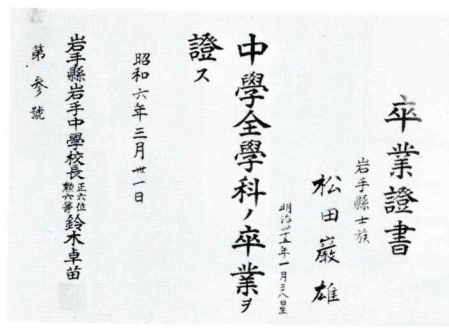 卒業證書
岩手縣士族
松田巖雄
明治四十五年一月二八日生
中學全學科ノ卒業ヲ
證ス
昭和六年三月卅一日
岩手縣岩手中學校長正六位勲六等鈴木卓苗
第参號